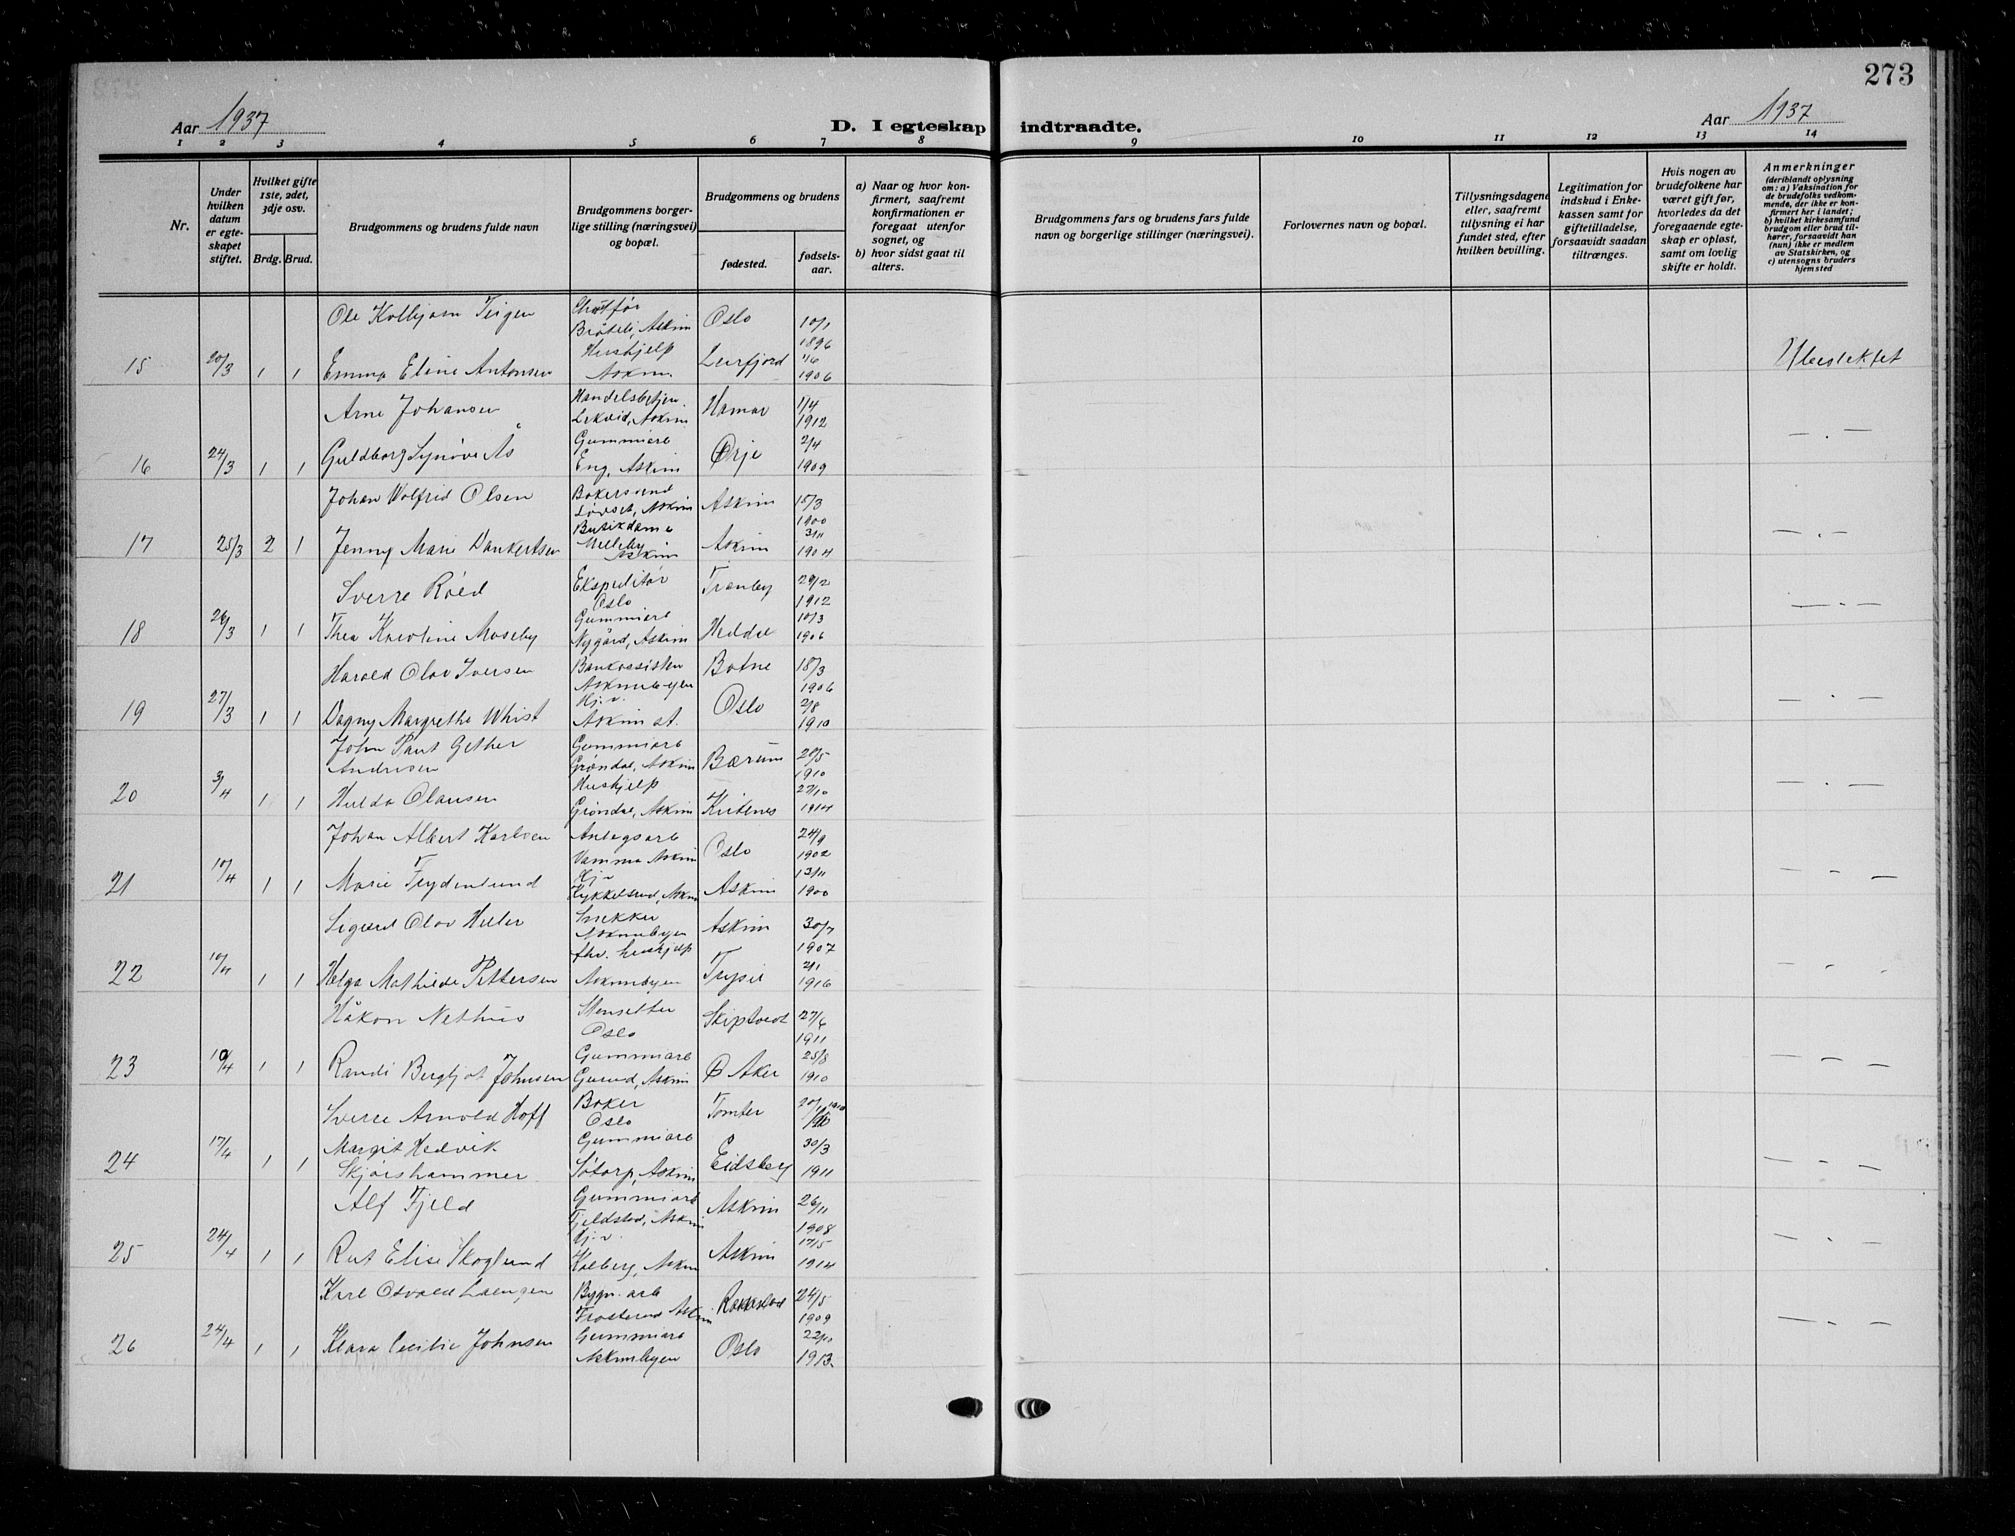 273
Aar 1937
D. I egteskap indtraadte.
Aar 1937
1 2 3 4 5 6 7 8 9 10 11 12 13 14
Nr.
Under hvilken datum er egteskapet stiftet.
Hvilket gifte 1ste, 2det, 3dje osv.
Brdg. Brud.
Brudgommens og brudens fulde navn
Brudgommens borgerlige stilling (næringsvei) og bopæl.
Brudgommens og brudens
fødested.
fødselsaar.
a) Naar og hvor konfirmert, saafremt konfirmationen er foregaat utenfor sognet, og
b) hvor sidst gaat til alters.
Brudgommens fars og brudens fars fulde navn og borgerlige stillinger (næringsvei).
Forlovernes navn og bopæl.
Tillysningsdagene eller, saafremt tillysning ei har fundet sted, efter hvilken bevilling.
Legitimation for indskud i Enkekassen samt for giftetilladelse, forsaavidt saadan tiltrænges.
Hvis nogen av brudefolkene har været gift før, hvorledes da det foregaaende egteskap er opløst, samt om lovlig skifte er holdt.
Anmerkninger (deriblandt oplysning om: a) Vaksination for de brudefolks vedkommende, der ikke er konfirmert her i landet; b) hvilket kirkesamfund brudgom eller brud tilhører, forsaavidt han (hun) ikke er medlem av Statskirken, og c) utensogns bruders hjemsted
Ole Kolbjørn Teigen Oslo 10/1 1896
15 20/3 1 1 Emma Eline Antonsen Hushjelp Askim Leirfjord 1906
Ubeslektet
Arne Johansen Handelsbetjen. Askim Hamar 1/4 1912
16 24/3 1 1 Guldborg Synøve Ås Gummiarb Eng, Askim Ørje 2/4 1909 — . —
Johan Wolfrid Olsen Askim Askim 15/3 1900
17 25/3 2 1 Jenny Marie Dankertsen Butikdame Askim Askim 3/11 1904 — . —
Sverre Røed Ekspeditør Oslo Tranby 29/2 1912
18 26/3 1 1 Thea Karoline Moseby Gummiarb Nygård, Askim 10/3 1906 — . —
Harald Olav Iversen Bankassisten Askimbyen Botne 18/3 1906
19 27/3 1 1 Dagny Margrethe Whist Hj.v. Askim st. Oslo 2/8 1910 — . —
John Paul Gether Andresen Gummiarb Grøndal, Askim Bærum 20/5 1910
20 3/4 1 1 Hulda Olausen Hushjelp Grøndal, Askim 27/10 1914 — . —
Johan Albert Karlsen Anlegsarb Vamma Askim Oslo 24/9 1902
21 10/4 1 1 Marie Frydenlund Hj.v Kykkelsrud, Askim Askim 13/11 1900 — — —
Sigurd Olav Heller Snekker Askimbyen Askim 30/7 1907
22 10/4 1 1 Helga Mathilde Pettersen fhv. hushjelp Askimbyen Trysil 2/1 1916 — . —
Håkon Nethus Stensetter Oslo Skiptvedt 27/6 1911
23 10/4 1 1 Randi Bergljot Johnsen Gummiarb Askim Ø Aker 25/8 1910 — — —
Sverre Arnold Hoff Baker Oslo Tomter 1910
24 17/4 1 1 Margit Hedvik Skjørshammer Gummiarb Søtorp, Askim Eidsberg 30/3 1911 — — —
Alf Fjeld Gummiarb Fjeldstad, Askim Askim 26/11 1908
25 24/4 1 1 Rut Elise Skoglund Hj.v. Kolberg, Askim Askim 17/5 1914 — . —
Karl Osvald Laengen Bygn. arb Askim Rakkestad 24/5 1909
26 24/4 1 1 Klara Cecilie Johnsen Gummiarb Askimbyen Oslo 1913 — . —